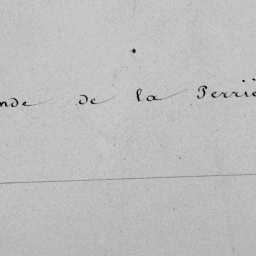 nde de la Perriè